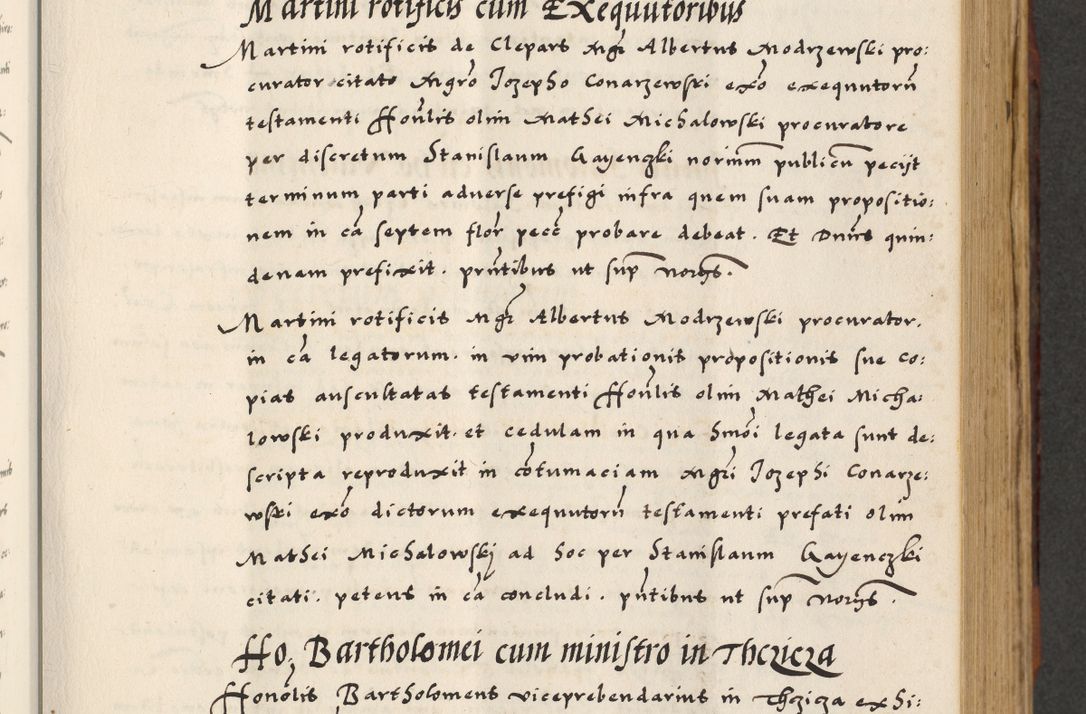 Martini rotificis cum EXequutoribus
Martini rotificis de Clepars Mgr Albertus Modrzewski pro:
curator citato Mgro Iozepho Conarzewski exō exequutorū
testamenti Honlis olim Mathei Michalowski procuratore
per discretum Stanislaum Gayenczki norium publicū peciit
terminum parti adverse prefigi infra quem suam propositio:
nem in cā septem flor pecē probare debeat. Et Dnus quin:
denam prefixit. pntibus ut sup noryis.
Martini rotificis Mgr Albertus Modrzewski procurator.
in cā legatorum. in vim probationis propositionis sue co:
pias auscultatas testamenti Honlis olim Mathei Micha:
lowski produxit. et cedulam in qua hmōi legata sunt de:
scripta reproduxit in cōtumaciam Mgri Iozephi Conarze:
wski exō dictorum exequutorū testamenti prefati olim
Mathei Michalowskj ad hoc per Stanislaum Gayenczki
citati. petens in cā concludi. pntibus ut sup noryis.
Ho, Bartholomei cum ministro in Thczicza
Honōlis Bartholomeus viceprebendarius in Thczicza exhi: